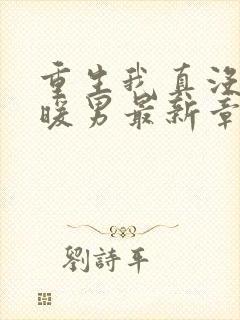 重生我真没
暖男最新章
劉詩平